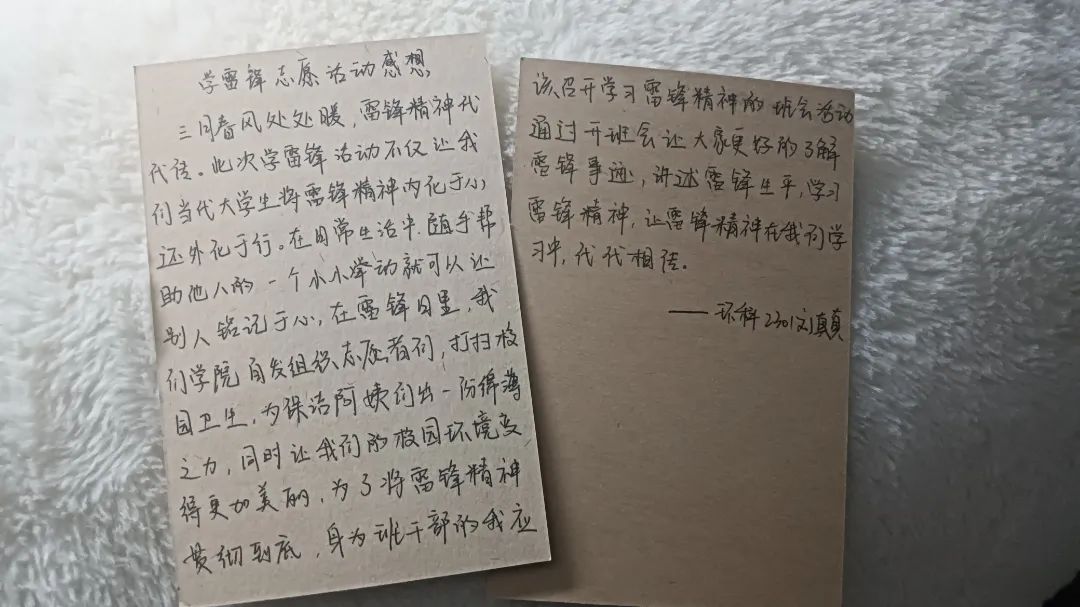 学雷锋志愿活动感想
三月春风处处暖,雷锋精神代
代传。此次学雷锋活动不仅让我
们当代大学生将雷锋精神内化于心,
还外化于行。在日常生活中.随手帮
助他人的一个小小举动就可以让
别人铭记于心,在雷锋月里,我
们学院自发组织志愿者们,打扫校
园卫生,为保洁阿姨们出一份绵薄
之力,同时让我们的校园环境变
得更加美丽,为了将雷锋精神
贯彻到底,身为班干部的我应
该召开学习雷锋精神的班会活动
通过开班会让大家更好的了解
雷锋事迹,讲述雷锋生平,学习
雷锋精神,让雷锋精神在我们学
习中,代代相传。
——环科2301刘真真